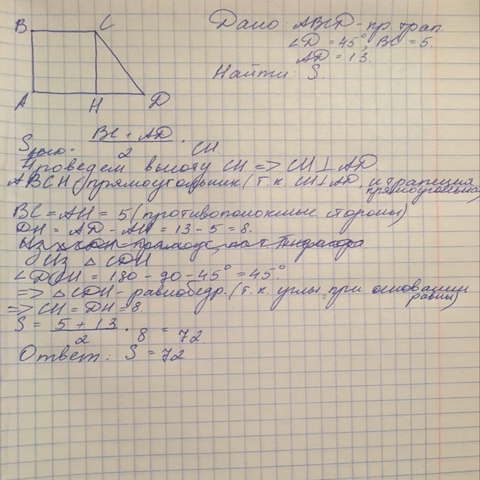 B C
A H D
Дано: ABCD - пр. трап.
∠D = 45°, BC = 5.
AD = 13.
Найти: S.
BC + AD
2 · CH
Проведем высоту CH => CH ⊥ AD
ABCH прямоугольник (т.к CH ⊥ AD, и трапеция
прямоугольна)
BC = AH = 5 (противоположные стороны)
DH = AD - AH = 13 - 5 = 8.
Из △ CDH
= 180 - 90 - 45° = 45°
=> △ CDH - равнобедр. (т.к. углы при основании
равны)
=> CH = DH = 8
S = 5 + 13
2 · 8 = 72
Ответ: S = 72